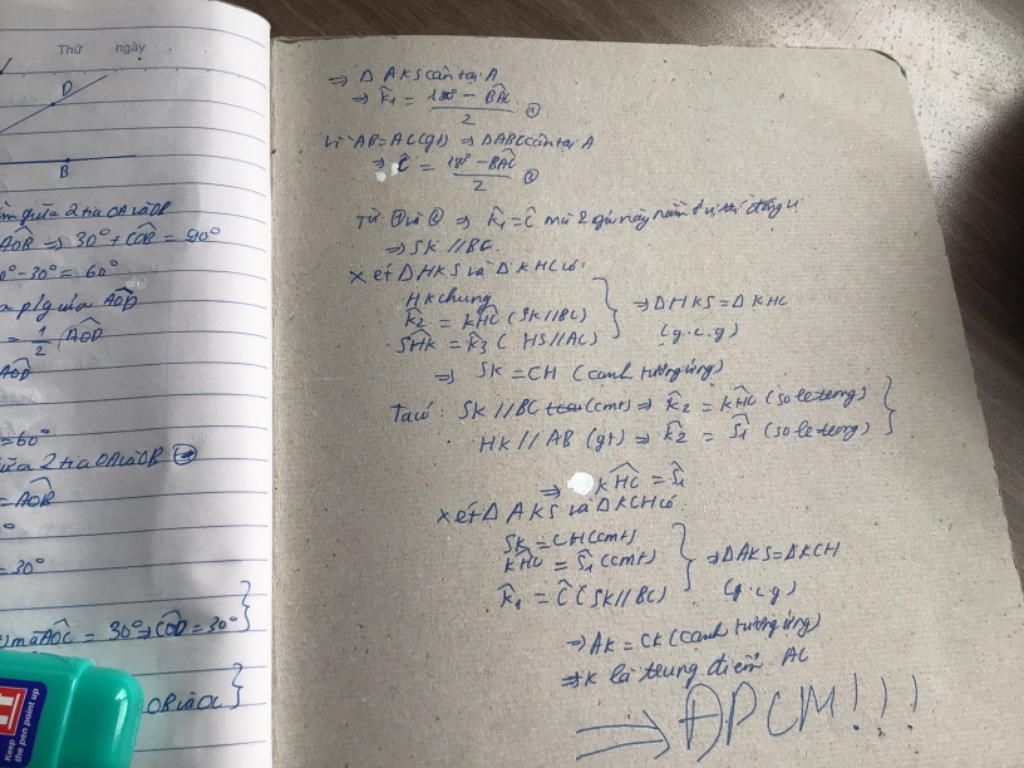 Thứ ngày
D
B
2 tia OA và OB
AOB ⇒ 30° + COB = 90°
0° - 30° = 60°
p/g của AOD
= 1/2 AOD
AOD
= 60°
2 tia OA và OB
= AOB
= 30°
mà AOC = 30° ⇒ COD = 30°
OB và OC
Keep
the pen point up
⇒ Δ AKS cân tại A
⇒ K̂₁ = (180° - BAC)/2 ①
Vì AB = AC (gt) ⇒ ΔABC cân tại A
⇒ Ĉ = (180° - BAC)/2 ②
Từ ① và ② ⇒ K̂₁ = Ĉ mà 2 góc này nằm ở vị trí đồng vị
⇒ SK // BC.
Xét Δ HKS và Δ KHC có:
HK chung
K̂₂ = KHC (SK // BC)
SHK = K̂₃ (HS // AC)
⇒ ΔHKS = Δ KHC
(g.c.g)
⇒ SK = CH (cạnh tương ứng)
Ta có: SK // BC (cmt) ⇒ K̂₂ = KHC (so le trong)
HK // AB (gt) ⇒ K̂₂ = Ŝ₁ (so le trong)
⇒ KHC = Ŝ₁
Xét Δ AKS và ΔKCH có
SK = CH (cmt)
KHC = Ŝ₁ (cmt)
K̂₁ = Ĉ (SK // BC)
⇒ ΔAKS = ΔKCH
(g.c.g)
⇒ AK = CK (cạnh tương ứng)
⇒ K là trung điểm AC
⇒ ĐPCM!!!